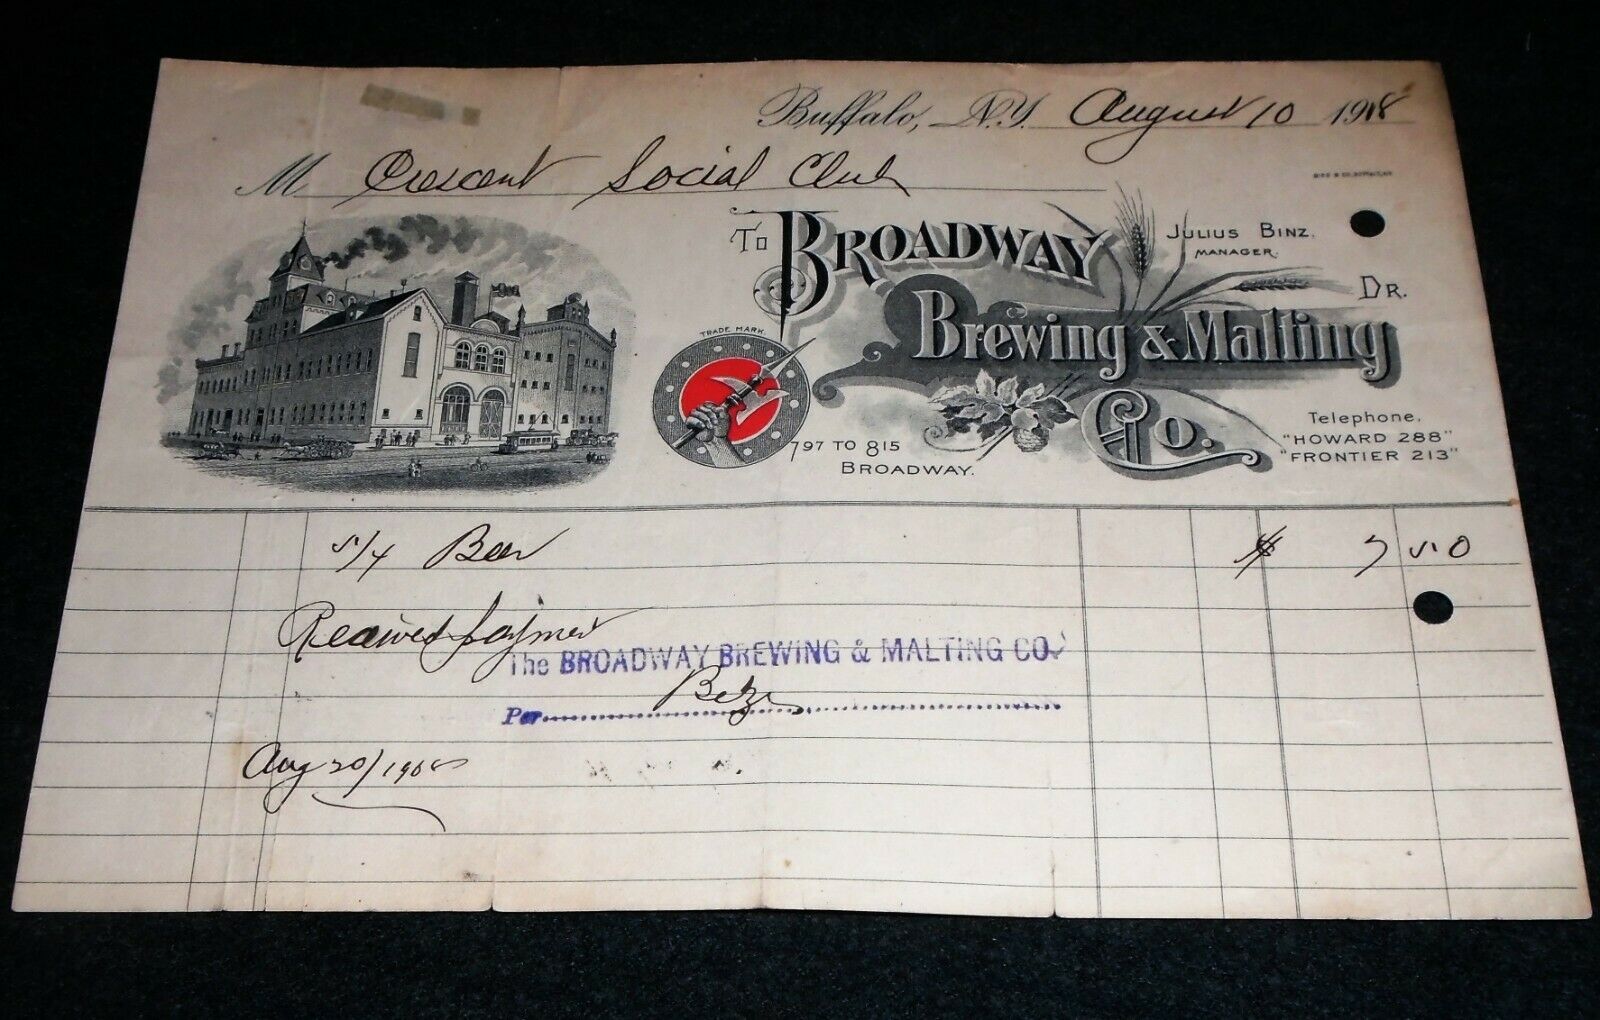 Buffalo, N.Y. August 10 1908
M Crescent Social Club
To BROADWAY
Brewing & Malting
Co.
JULIUS BINZ.
MANAGER.
DR.
TRADE MARK.
797 TO 815
BROADWAY.
Telephone.
"HOWARD 288"
"FRONTIER 213"
5/4 Beer $ 7 50
Received payment
The BROADWAY BREWING & MALTING CO.
Per
Aug 20/1908